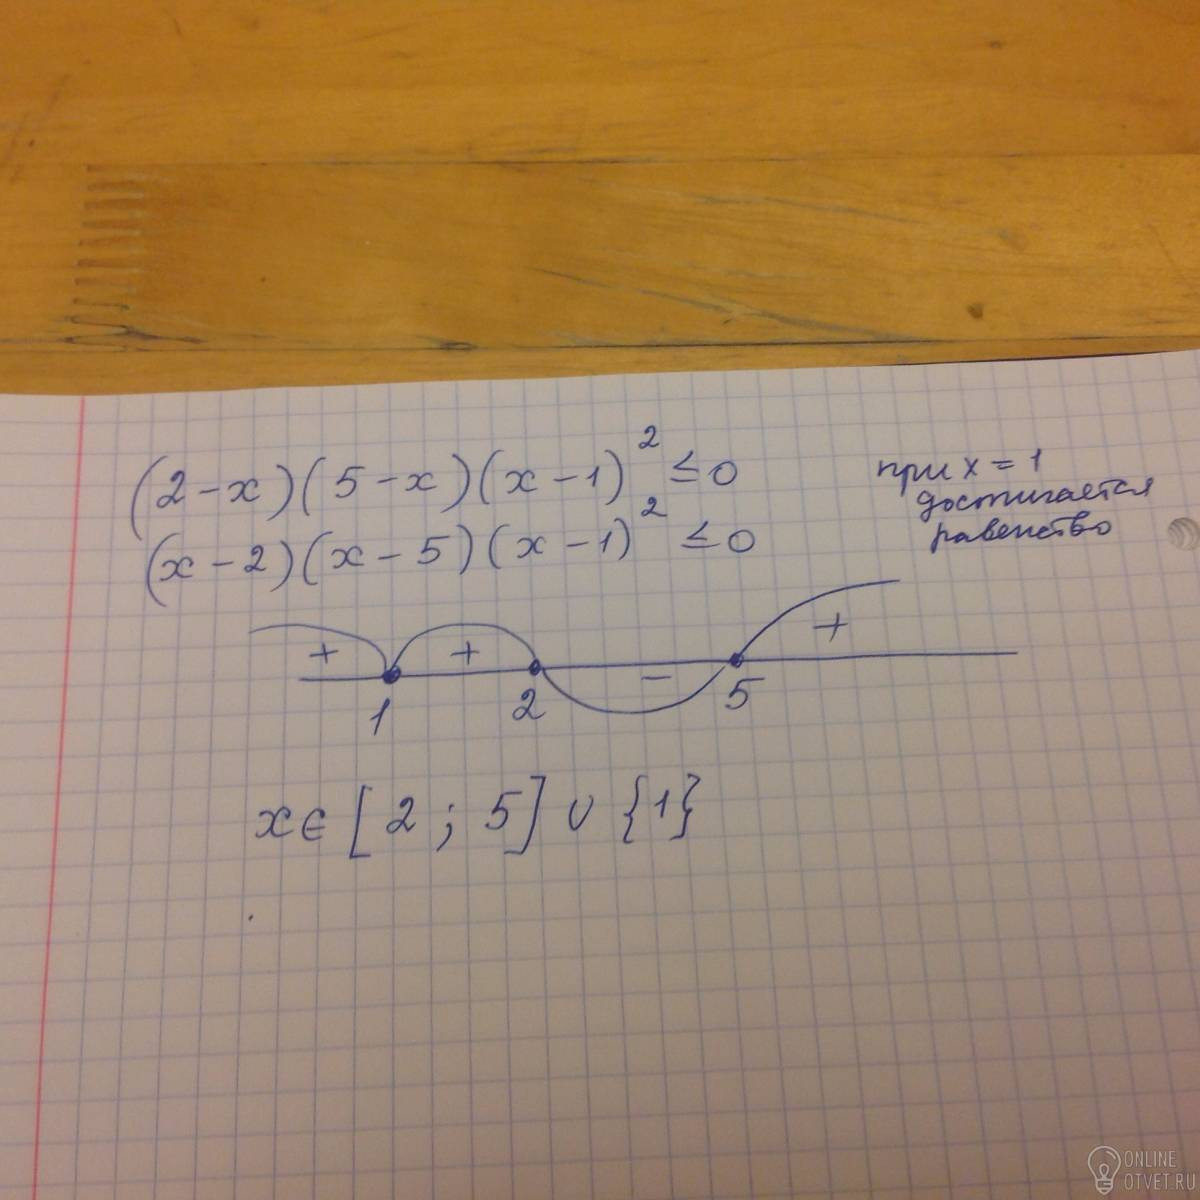 (2-x)(5-x)(x-1)² ≤ 0
при x = 1
достигается
равенство
(x-2)(x-5)(x-1)² ≤ 0
+ + - +
1 2 5
x ∈ [2; 5] ∪ {1}
ONLINE
OTVET.RU